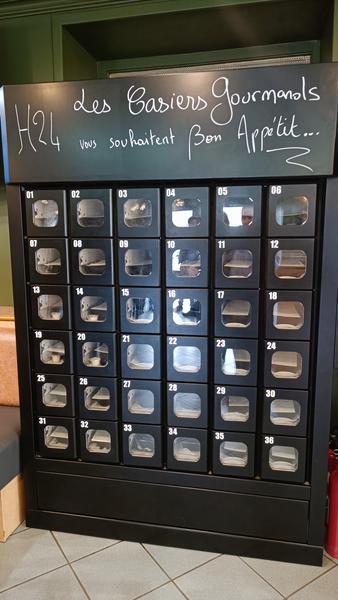 H24
Les Casiers Gourmands
vous souhaitent Bon Appétit...
01 02 03 04 05 06
07 08 09 10 11 12
13 14 15 16 17 18
19 20 21 22 23 24
25 26 27 28 29 30
31 32 33 34 35 36